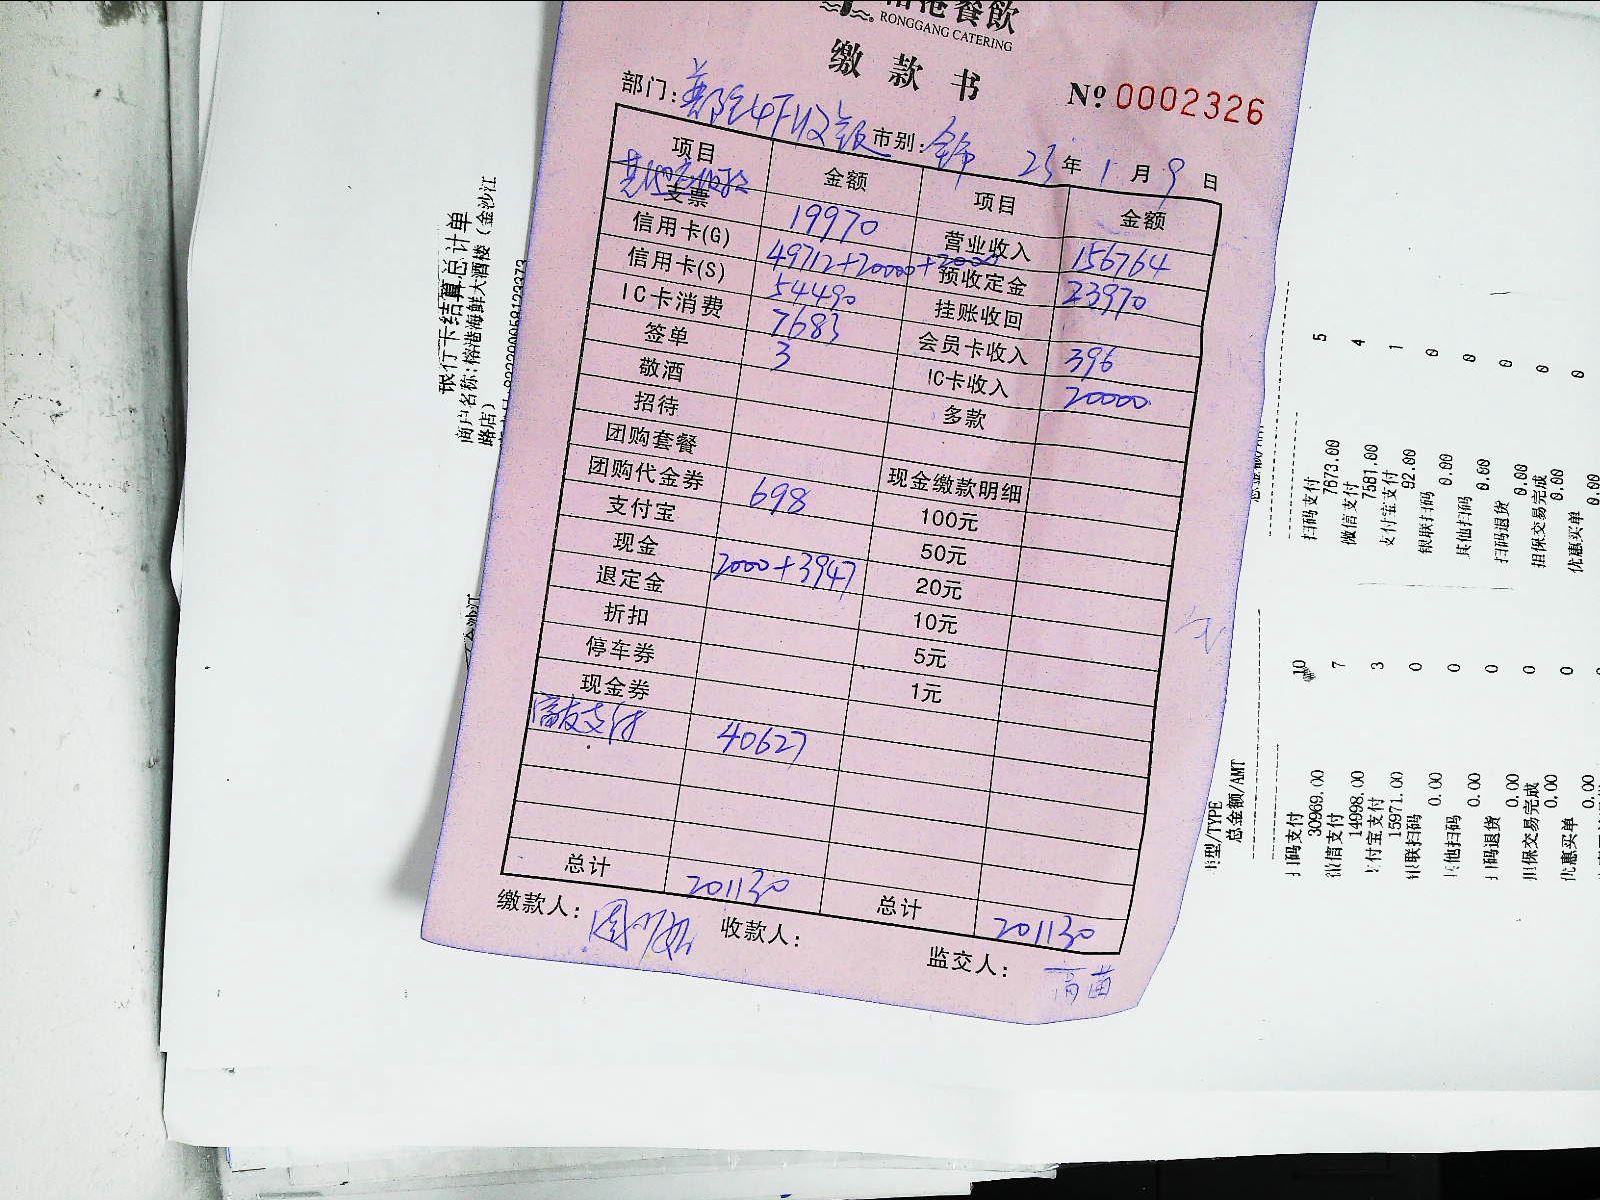 榕港餐飲
RONGGANG CATERING
缴款书
№ 0002326
部门: 市别: 全市 23 年 1 月 9 日
项目 金额 项目 金额
支票 19970 营业收入 156764
信用卡(G) 49712+20000+2000 预收定金 23970
信用卡(S) 54490 挂账收回
IC卡消费 7683 会员卡收入 396
签单 3 IC卡收入 20000
敬酒 多款
招待
团购套餐 现金缴款明细
团购代金券 698 100元
支付宝 50元
现金 2000+3947 20元
退定金 10元
折扣 5元
停车券 1元
现金券
支付 40627
总计 201130 总计 201130
缴款人: 收款人: 监交人:
银行卡结算总计单
商户名称:榕港海鲜大酒楼(金沙江
路店)
扫码支付 5
7673.00
微信支付 4
7581.00
支付宝支付 1
92.00
银联扫码 0
0.00
其他扫码 0
0.00
扫码退货 0
0.00
担保交易完成 0
0.00
优惠买单 0
0.00
卡型/TYPE
总金额/AMT
扫码支付 10
30969.00
微信支付 7
14998.00
支付宝支付 3
15971.00
银联扫码 0
0.00
其他扫码 0
0.00
扫码退货 0
0.00
担保交易完成 0
0.00
优惠买单 0
0.00